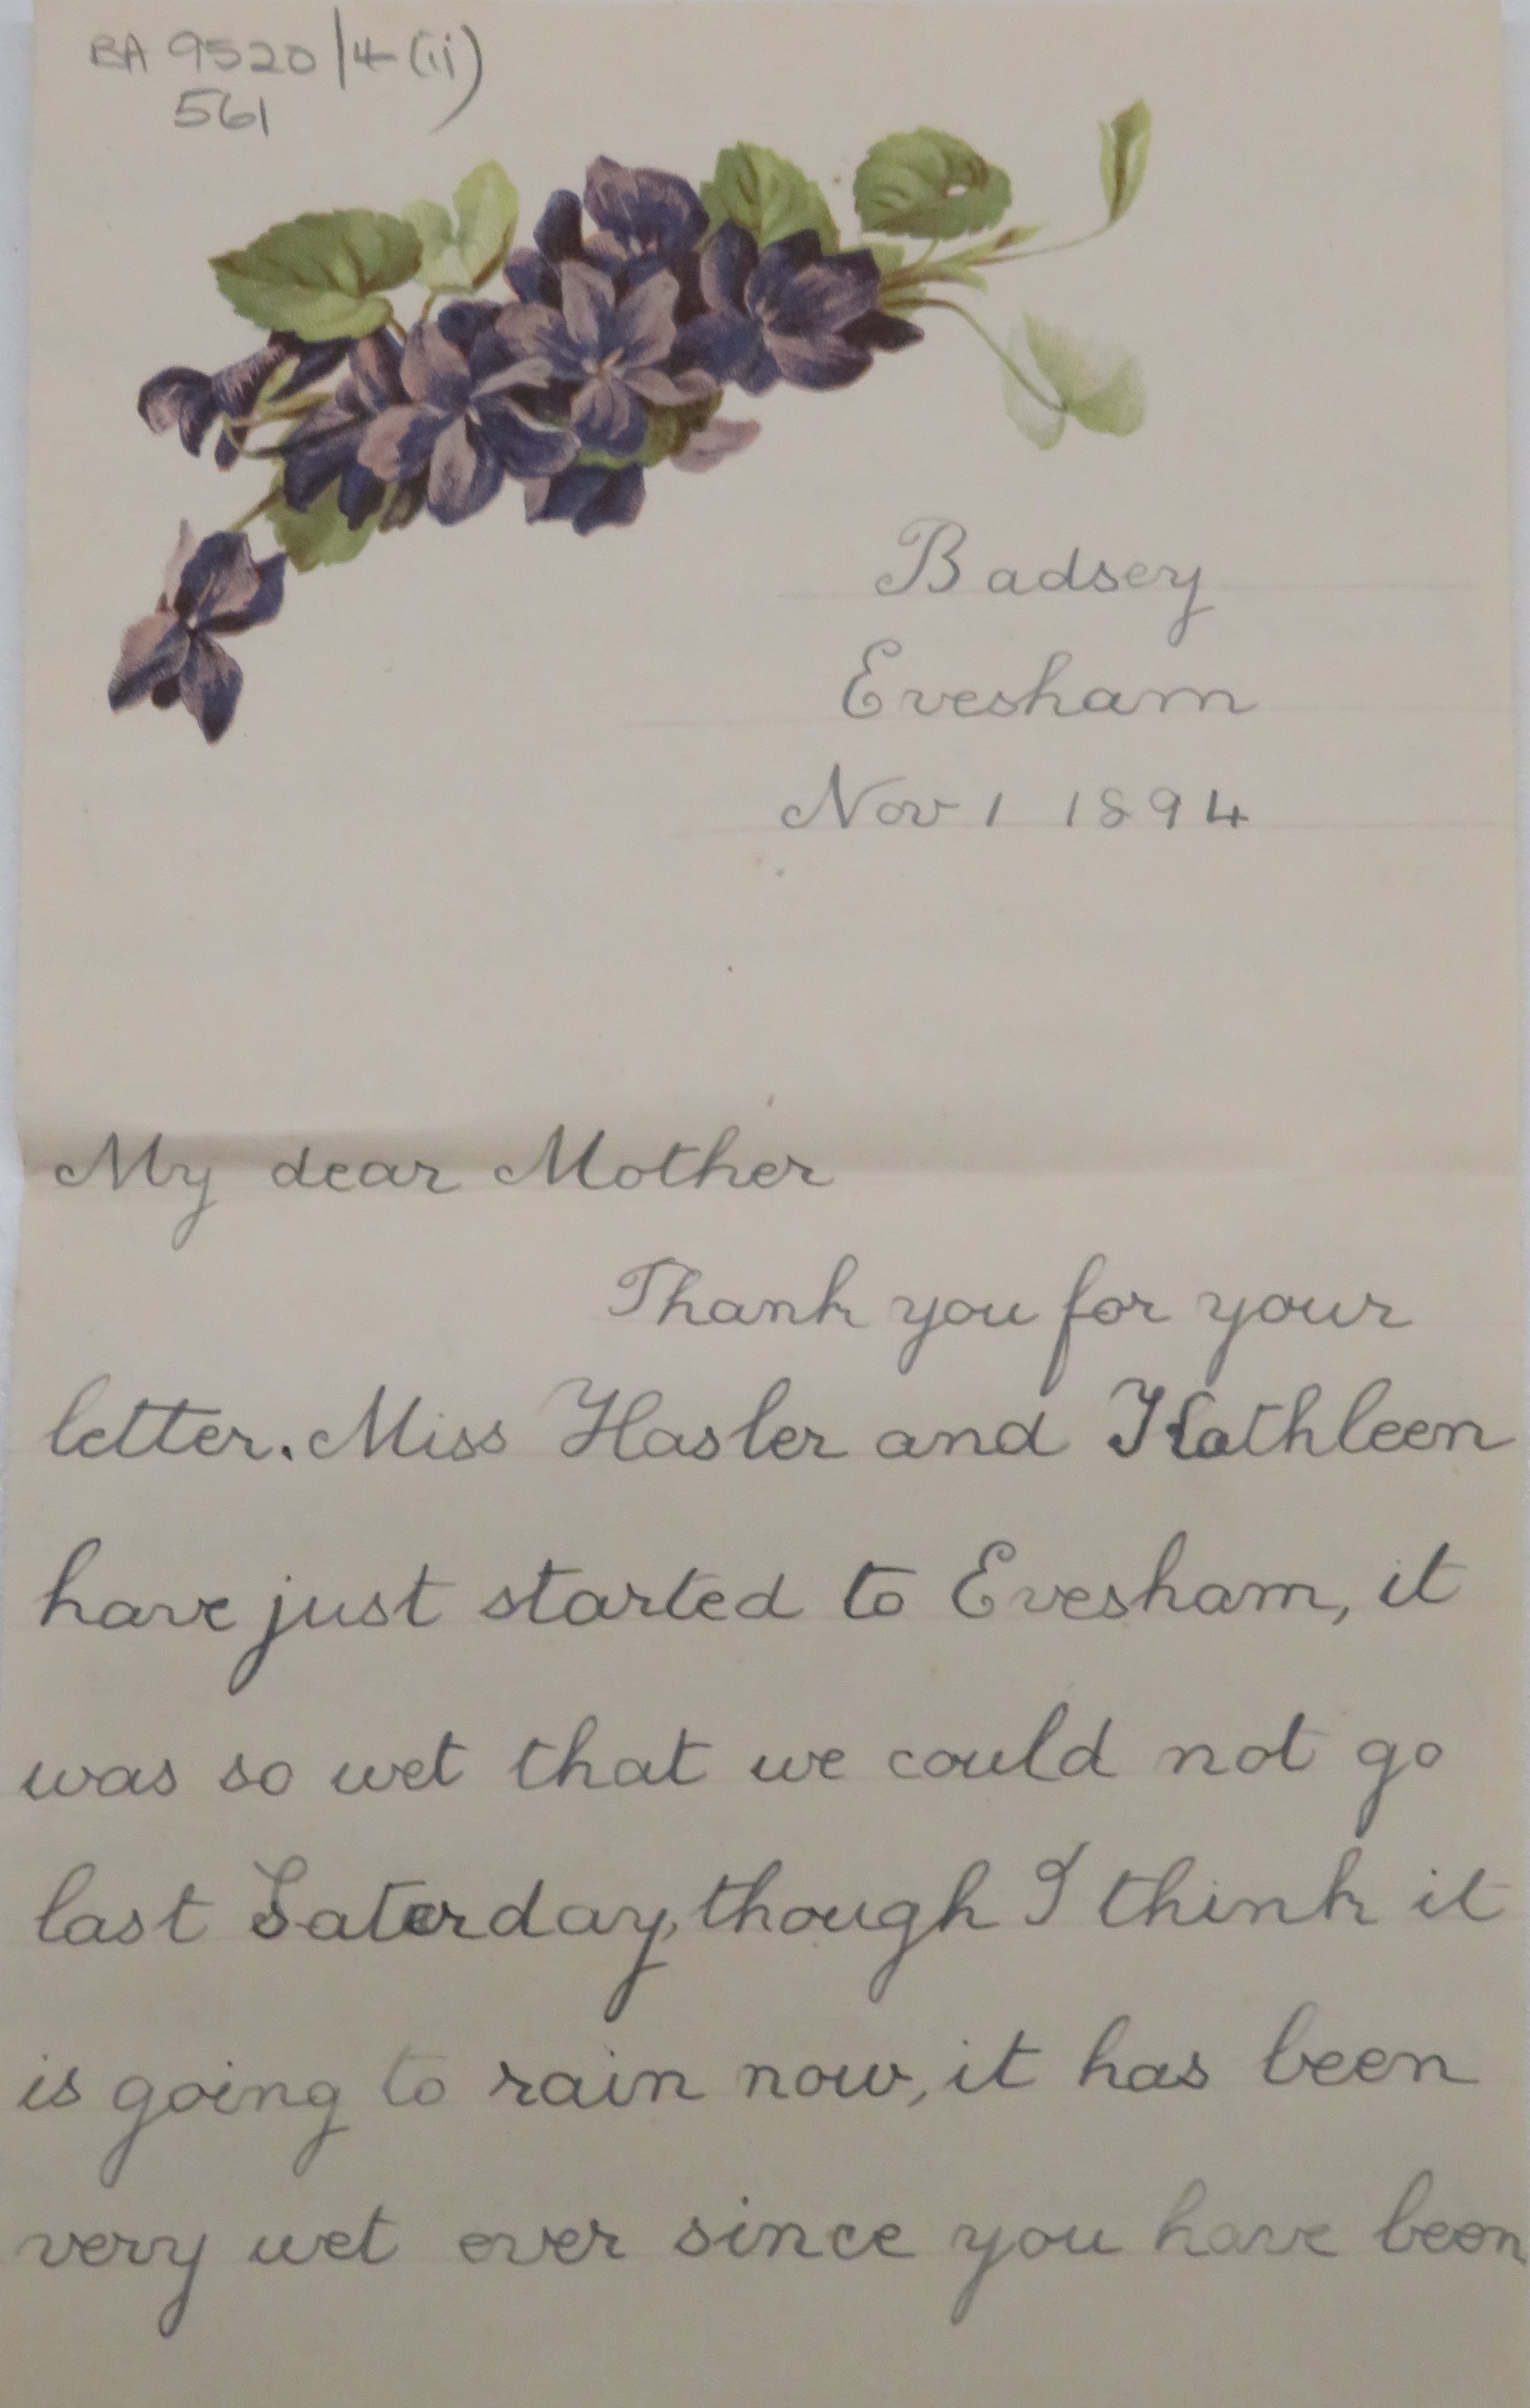 BA 9520/4(ii)
561
Badsey
Evesham
Nov 1 1894
My dear Mother
Thank you for your
letter. Miss Hasler and Kathleen
have just started to Evesham, it
was so wet that we could not go
last Saturday, though I think it
is going to rain now, it has been
very wet ever since you have been